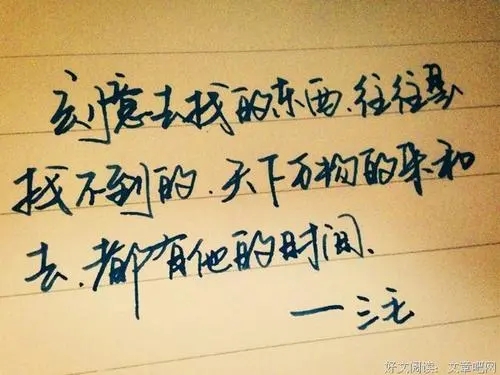 刻意去找的东西、往往是
找不到的、天下万物的来和
去、都有他的时间、
一三毛
好文阅读：文章吧网